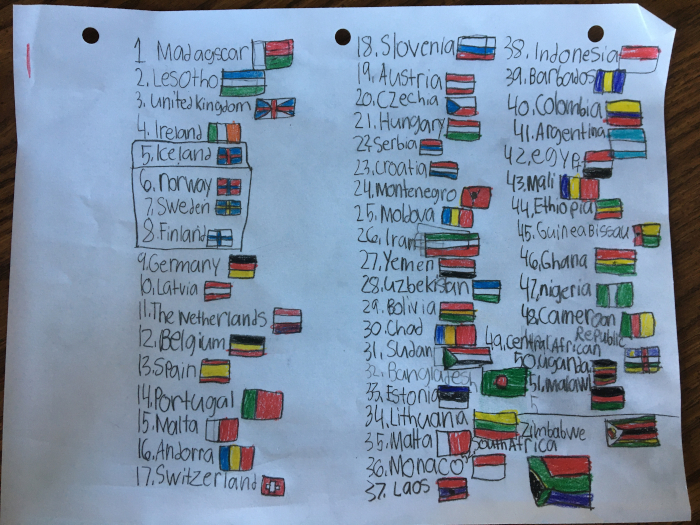 1 Madagascar
2. Lesotho
3. united kingdom
4. Ireland
5. Iceland
6. norway
7. Sweden
8. Finland
9. Germany
10. Latvia
11. The Netherlands
12. Belgium
13. Spain
14. Portugal
15. Malta
16. Andorra
17. Switzerland
18. Slovenia
19. Austria
20. Czechia
21. Hungary
22. Serbia
23. Croatia
24. Montenegro
25. Moldova
26. Iran
27. Yemen
28. uzbekistan
29. Bolivia
30. Chad
31. Sudan
32. Bangladesh
33. Estonia
34. Lithuania
35. Malta
36. Monaco
37. Laos
38. Indonesia
39. Barbados
40. Colombia
41. Argentina
42. egya
43. Mali
44. Ethiopia
45. Guinea Bissau
46. Ghana
47. nigeria
48. Cameroon
49. Central African Republic
50. uganda
51. Malawi
5
Zimbabwe
South Africa